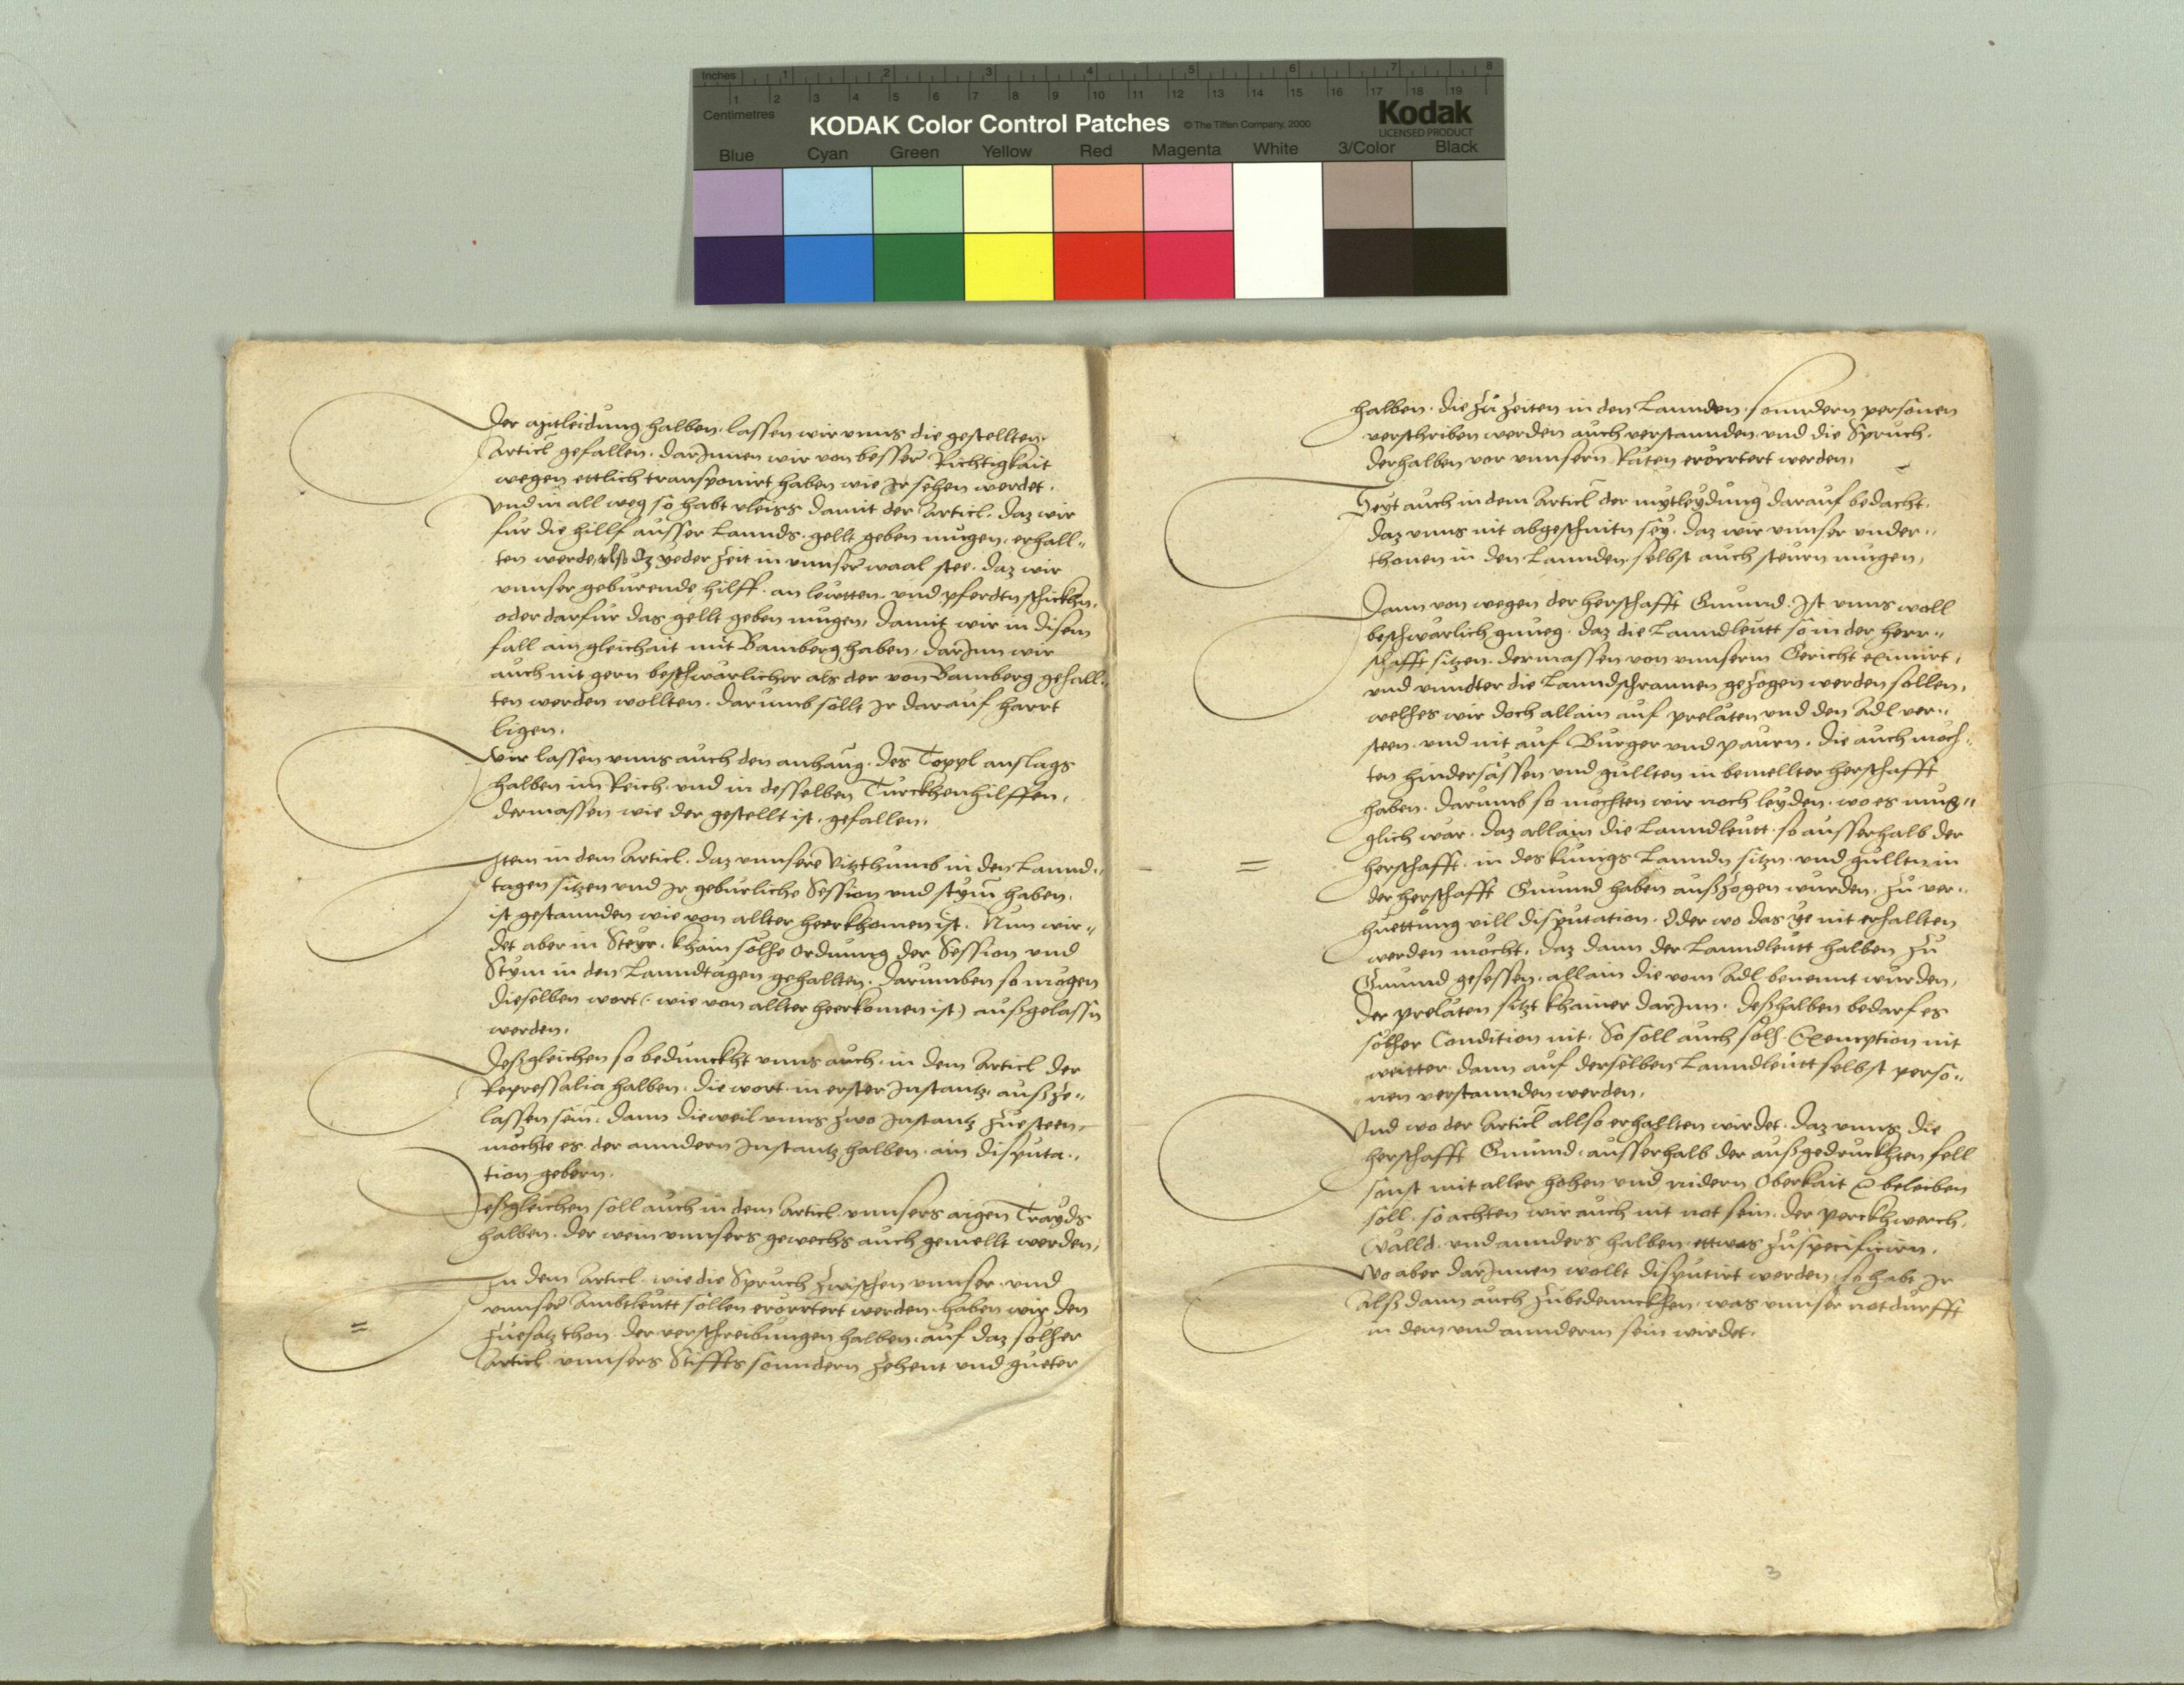 Inches 1 2 3 4 5 6 7 8
1 2 3 4 5 6 7 8 9 10 11 12 13 14 15 16 17 18 19
Centimetres
KODAK Color Control Patches © The Tiffen Company, 2000 Kodak
LICENSED PRODUCT
Blue Cyan Green Yellow Red Magenta White 3/Color Black
Der mitleidung halben, lassen wir vnns die gestellten
Articl gefallen. darJnnen wir von besser Richtigkait
wegen ettlich transponirt haben wie Jr sehen werdet.
Vnd in all weg so habt vleiss damit der Articl. daz wir
fur die hillf ausser Lannds. gellt geben mugen. erhall„
ten werde, dz yeder Zeit in vnnser waal stee. daz wir
vnnser geburende hilff. an lewtten. vnd pferdtn schickhn,
oder darfur das gellt geben mugen, damit wir in disem
fall ain gleichait mit Bamberg haben, darJnn wir
auch nit gern beschwärlicher als der von Bamberg gehall„
ten werden wollten. darumb sollt Jr darauf harrt
ligen.
Wir lassen vnns auch den anhang. des Toppl anslags
halben im Reich. vnd in desselben Turckhenhilffen,
dermassen wie der gestellt ist. gefallen.
Item in dem Articl. daz vnnsere Vitzthumb in den Lannd„
tagen sitzen vnd Jr geburliche Session vnd stym haben.
ist gestannden wie von allter heerkhomen ist. Nun wir„
det aber in Steyr. khain solhe ordnung der Session vnd
Stym in den Lanndtägen gehallten. darumben so mögen
dieselben wort (. wie von allter heerkomen ist) außgelassn
werden.
Deßgleichen so bedunckht vnns auch. in dem Articl der
Repressalia halben. die wort. in erster Jnstantz. auß ze„
lassen sein. dann dieweil vnns zwo Jnstantz zuesteen,
möchte es der anndern Jnstantz halben. ain disputa„
tion gebern.
Deßgleichen soll auch in dem Articl vnnsers aigen Trayds
halben. der wein vnnsers gewechs auch gemellt werden,
In dem Articl. wie die Spruch zwischen vnnser vnd
vnnser Ambtleutt sollen erörrtert werden. haben wir den
zuesatz thon. der verschreibungen halben. auf daz solher
Articl. vnnsers Stiffts sonndern zehent vnd gueter
halben. die zu zeiten in den Lannden. sonndern personen
verschriben werden auch verstannden. vnd die Spruch.
derhalben vor vnnsern Räten erörrtert werden,
Seyt auch in dem Articl der mytleydung darauf bedacht.
daz vnns nit abgeschnitn sey. daz wir vnnser vnder„
thonen in den Lannden selbst auch steurn mugen,
Dann von wegen der herschafft Gmund. Ist vnns woll
beschwärlich gnueg. daz die Lanndleutt so in der herr„
schafft sitzen. dermassen von vnnserm Gericht eximirt,
vnd vnndter die Lanndschrannen gezogen werden sollen,
welches wir doch allain auf prelaten vnd den Adl ver„
steen. vnd nit auf Burger vnd paurn. die auch möch„
ten hindersässen vnd gullten in bemellter herschafft
haben. darumb so möchten wir noch leyden. wo es mug„
glich wär. daz allain die Lanndleutt. so ausserhalb der
herschafft. in des kunigs Lanndn sitzn. vnd gulltn in
der herschafft Gmund haben außzogen wurden. zu ver„
huettung vill disputation. Oder wo das ye nit erhallten
werden möcht. daz dann der Lanndleutt halben zu
Gmund gesessen. allain die vom Adl benennt wurden,
der prelaten sitzt khainer darJnn. deßhalben bedarf es
solher Condition nit. So soll auch solh Exemption nit
weitter dann auf derselben Lanndleutt selbst perso„
nen verstannden werden.
Vnd wo der Articl allso erhallten wirdet. daz vnns die
herschafft Gmund. ausserhalb der außgedruckhten fell
sonst mit aller hohen vnd nidern Oberkait beleiben
soll. so achten wir auch nit not sein. der perckhwerch.
Wälld. vnd annders halben. ettwas zuspecificirn.
Wo aber darJnnen wollt disputirt werden. so habt Jr
alß dann auch zubedennckhen. was vnnser notdurfft
in dem vnd annderm sein wirdet.
3